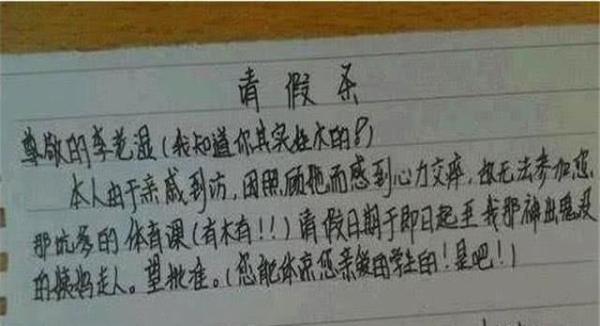 请假条
尊敬的李老湿(我知道你其实姓水的!)
本人由于亲戚到访,因照顾她而感到心力交瘁,故无法参加您
那坑爹的体育课(有木有!!)请假日期于即日起至我那神出鬼没
的姨妈走人。望批准。(您能体谅您亲爱的学生的!是吧!)